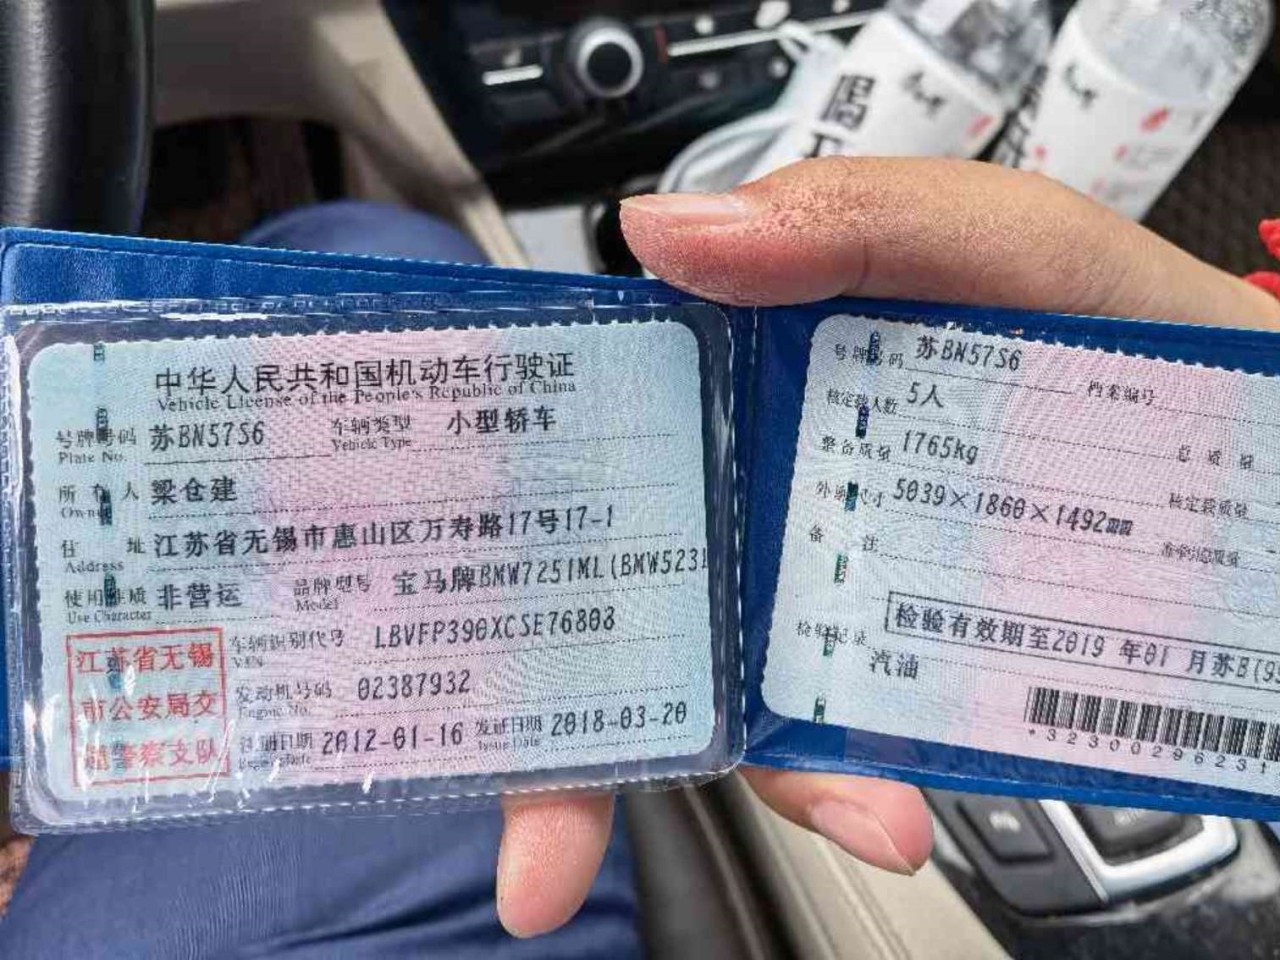 中华人民共和国机动车行驶证
Vehicle License of the People's Republic of China
号牌号码 苏BN57S6 车辆类型 小型轿车
Plate No. Vehicle Type
所有人 梁仓建
Owner
住址 江苏省无锡市惠山区万寿路17号17-1
Address
使用性质 非营运 品牌型号 宝马牌BMW7251ML(BMW523
Use Character Model
车辆识别代号 LBVFP390XCSE76803
VIN
发动机号码 02387932
Engine No.
注册日期 2012-01-16 发证日期 2018-03-20
Register Date Issue Date
江苏省无锡
市公安局交
通警察支队
号牌号码 苏BN57S6 档案编号
核定载人数 5人 总质量
整备质量 1765kg 核定载质量
外廓尺寸 5039×1860×1492mm 准牵引总质量
备注
检验有效期至2019年01月苏B(9
检验记录
汽油
*32300296231